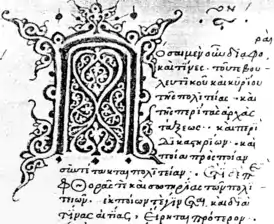 ραὶ
Πόσαι μὲν οὖν διαφο
καὶ τίνες· τοῦ τε βου
λευτικοῦ καὶ κυρίου
τῆς πολιτείας· καὶ
τῆς περὶ τὰς ἀρχὰς
τάξεως· καὶ περὶ
δικαστηρίων· καὶ
ποία πρὸς ποίαν
συντέτακται πολιτείαν· ἔτι δὲ π
φθορᾶς τε καὶ σωτηρίας τῶν πολι
τειῶν· ἐκ ποίων τε γίνεται καὶ διὰ
τίνας αἰτίας, εἴρηται πρότερον.